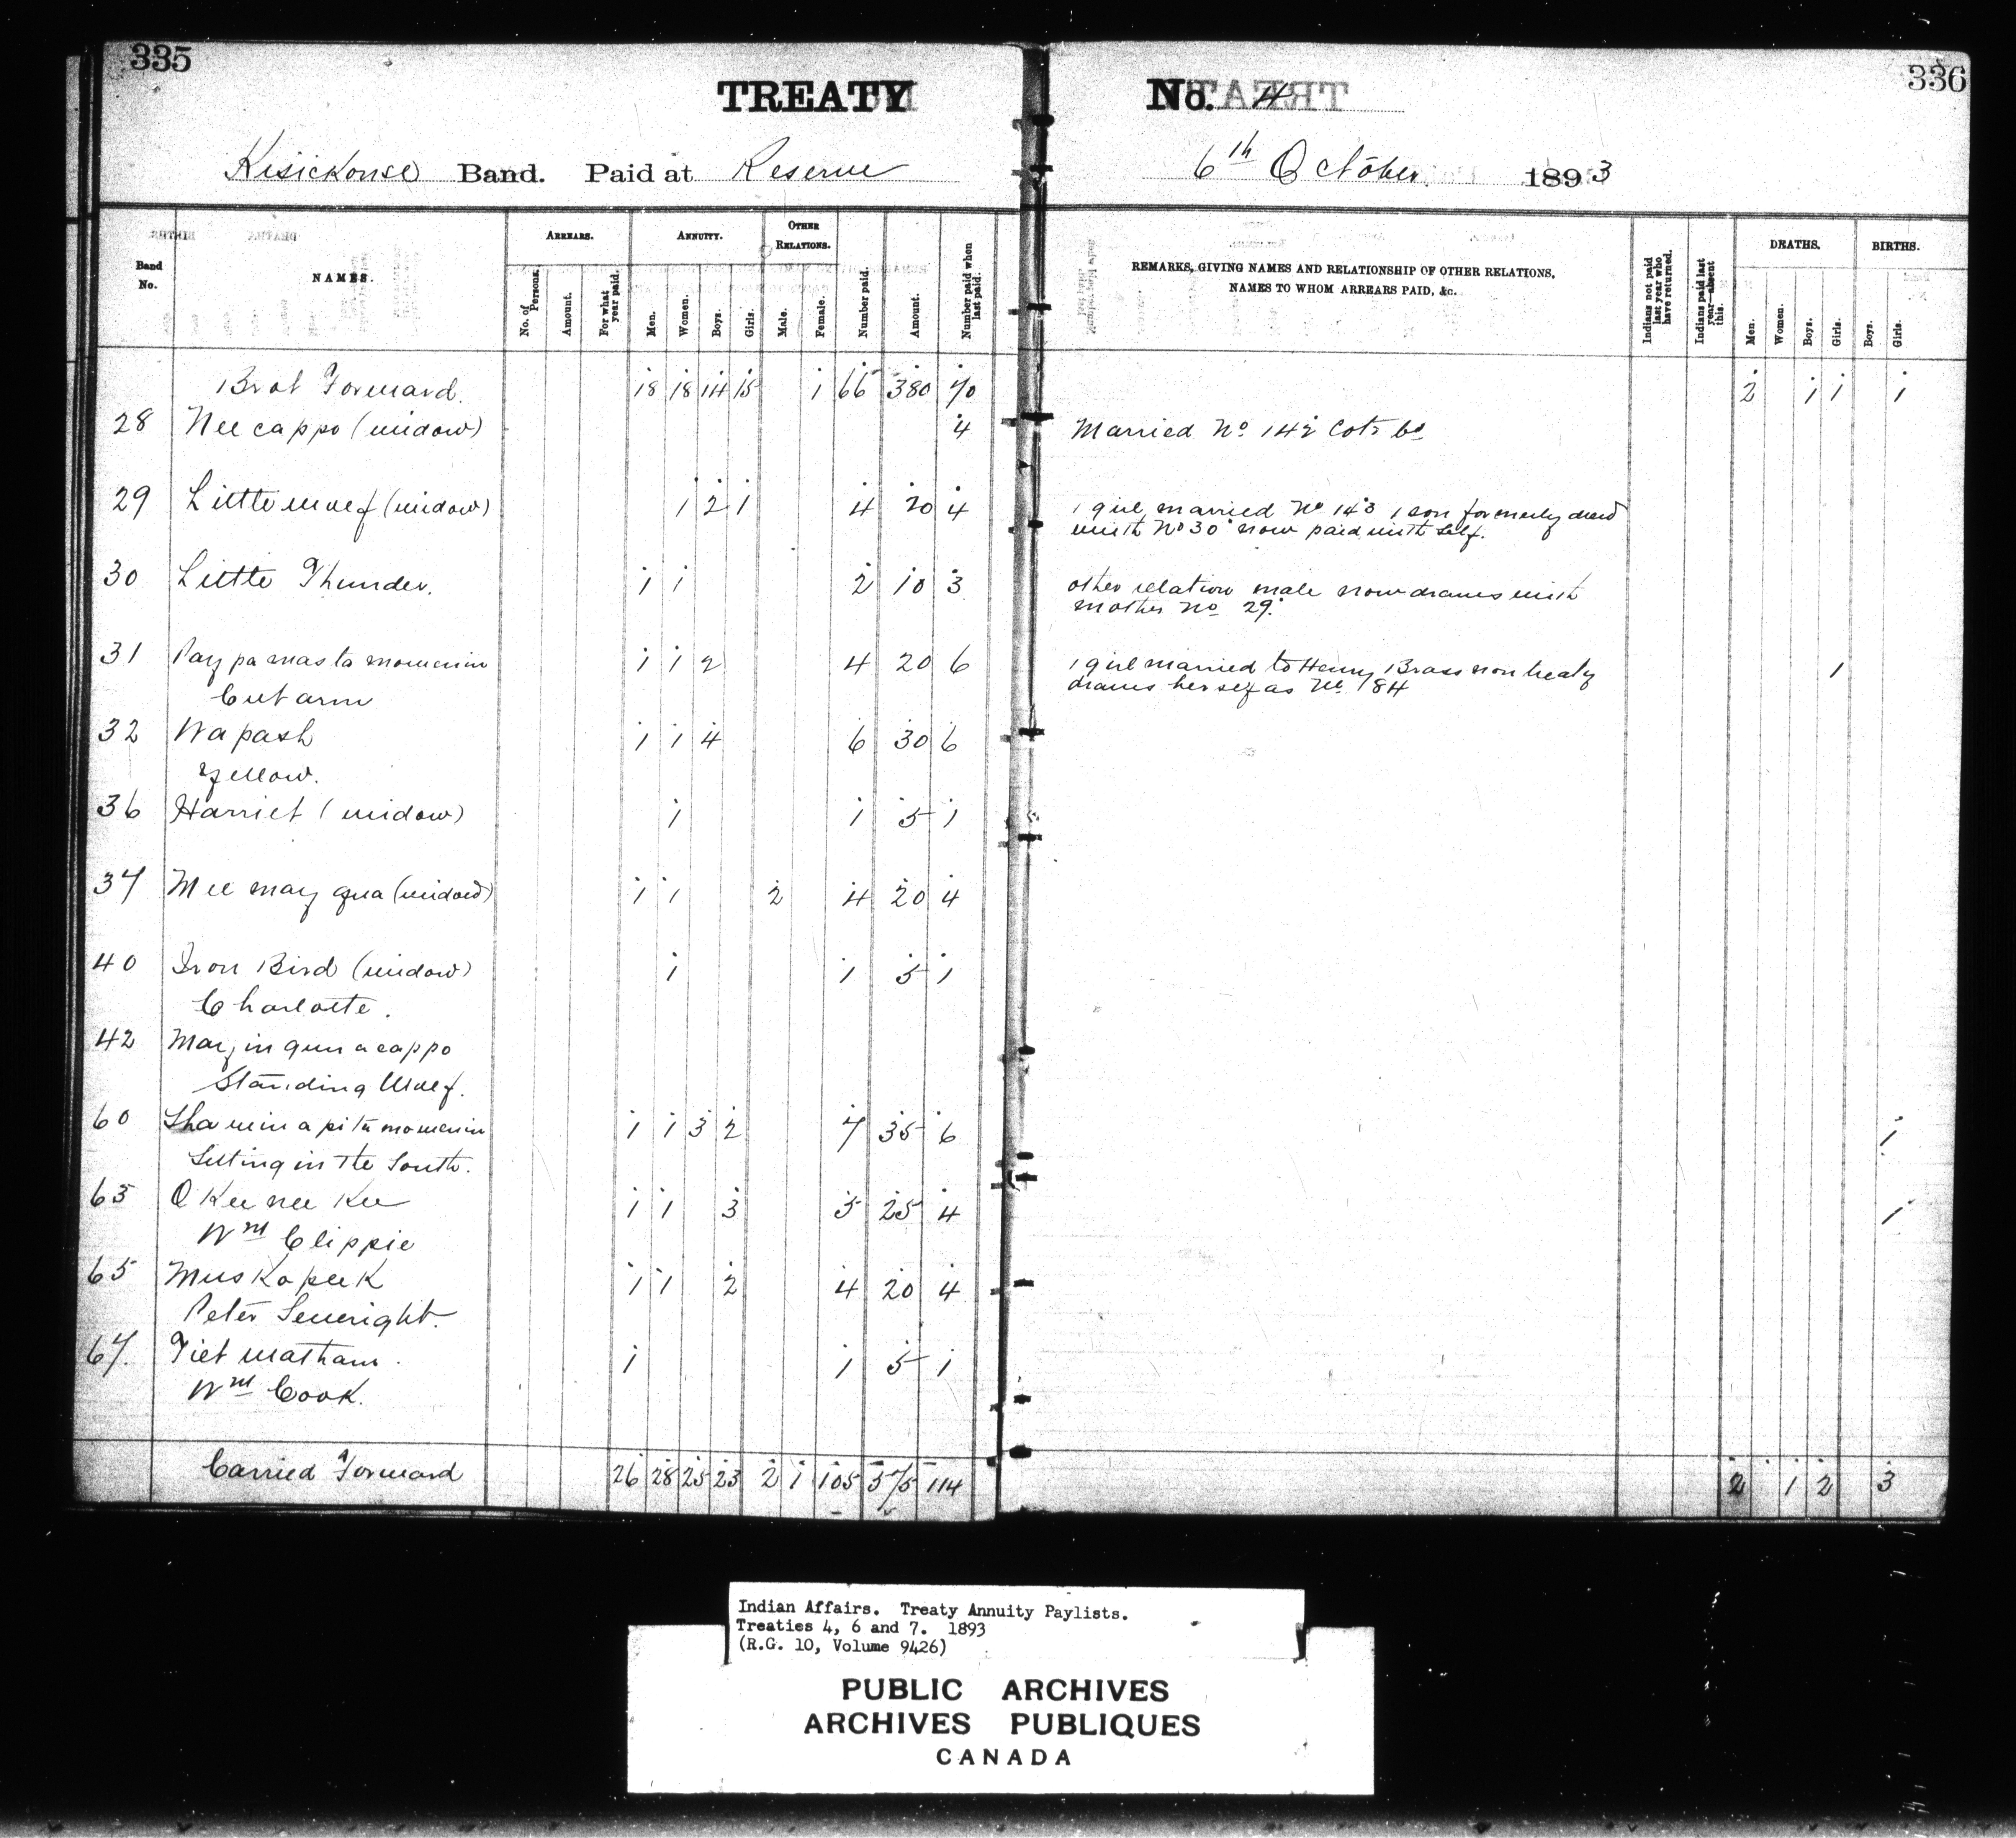 335
336
TREATY No. 4
Kisickouse Band. Paid at Reserve 6th October 1893
Band No.
NAMES.
ARREARS.
No. of Persons.
Amount.
For what year paid.
ANNUITY.
Men.
Women.
Boys.
Girls.
OTHER RELATIONS.
Male.
Female.
Number paid.
Amount.
Number paid when last paid.
REMARKS, GIVING NAMES AND RELATIONSHIP OF OTHER RELATIONS,
NAMES TO WHOM ARREARS PAID, &c.
Indians not paid last year who have returned.
Indians paid last year—absent this.
DEATHS.
Men.
Women.
Boys.
Girls.
BIRTHS.
Boys.
Girls.
Brot Forward. 18 18 14 15 1 66 380 70 2 1 1 1
28 Nee cappo (widow) 4 Married No 142 Cote Bd
29 Little wolf (widow) 1 2 1 4 20 4 1 girl married No 143 1 son formerly drew
with No 30 now paid with self.
30 Little Thunder. 1 1 2 10 3 other relation male now draws with
mother No 29.
31 Pay pa mas ta mowenin 1 1 2 4 20 6 1 girl married to Henry Brass non treaty 1
Cut arm draws herself as No 184
32 Wapash 1 1 4 6 30 6
Yellow.
36 Harriet (widow) 1 1 5 1
37 Mee may qua (widow) 1 1 2 4 20 4
40 Iron Bird (widow) 1 1 5 1
Charlotte.
42 May in gun a cappo
Standing Wolf.
60 Sha win a pi tu mowenin 1 1 3 2 7 35 6 1
Sitting in the South.
63 O Kee nee Kee 1 1 3 5 25 4 1
Wm Clippie
65 Muskopeek 1 1 2 4 20 4
Peter Severight.
67. Tiet watham. 1 1 5 1
Wm Cook.
Carried Forward 26 28 25 23 2 1 105 575 114 2 1 2 3
Indian Affairs. Treaty Annuity Paylists.
Treaties 4, 6 and 7. 1893
(R.G. 10, Volume 9426)
PUBLIC ARCHIVES
ARCHIVES PUBLIQUES
CANADA